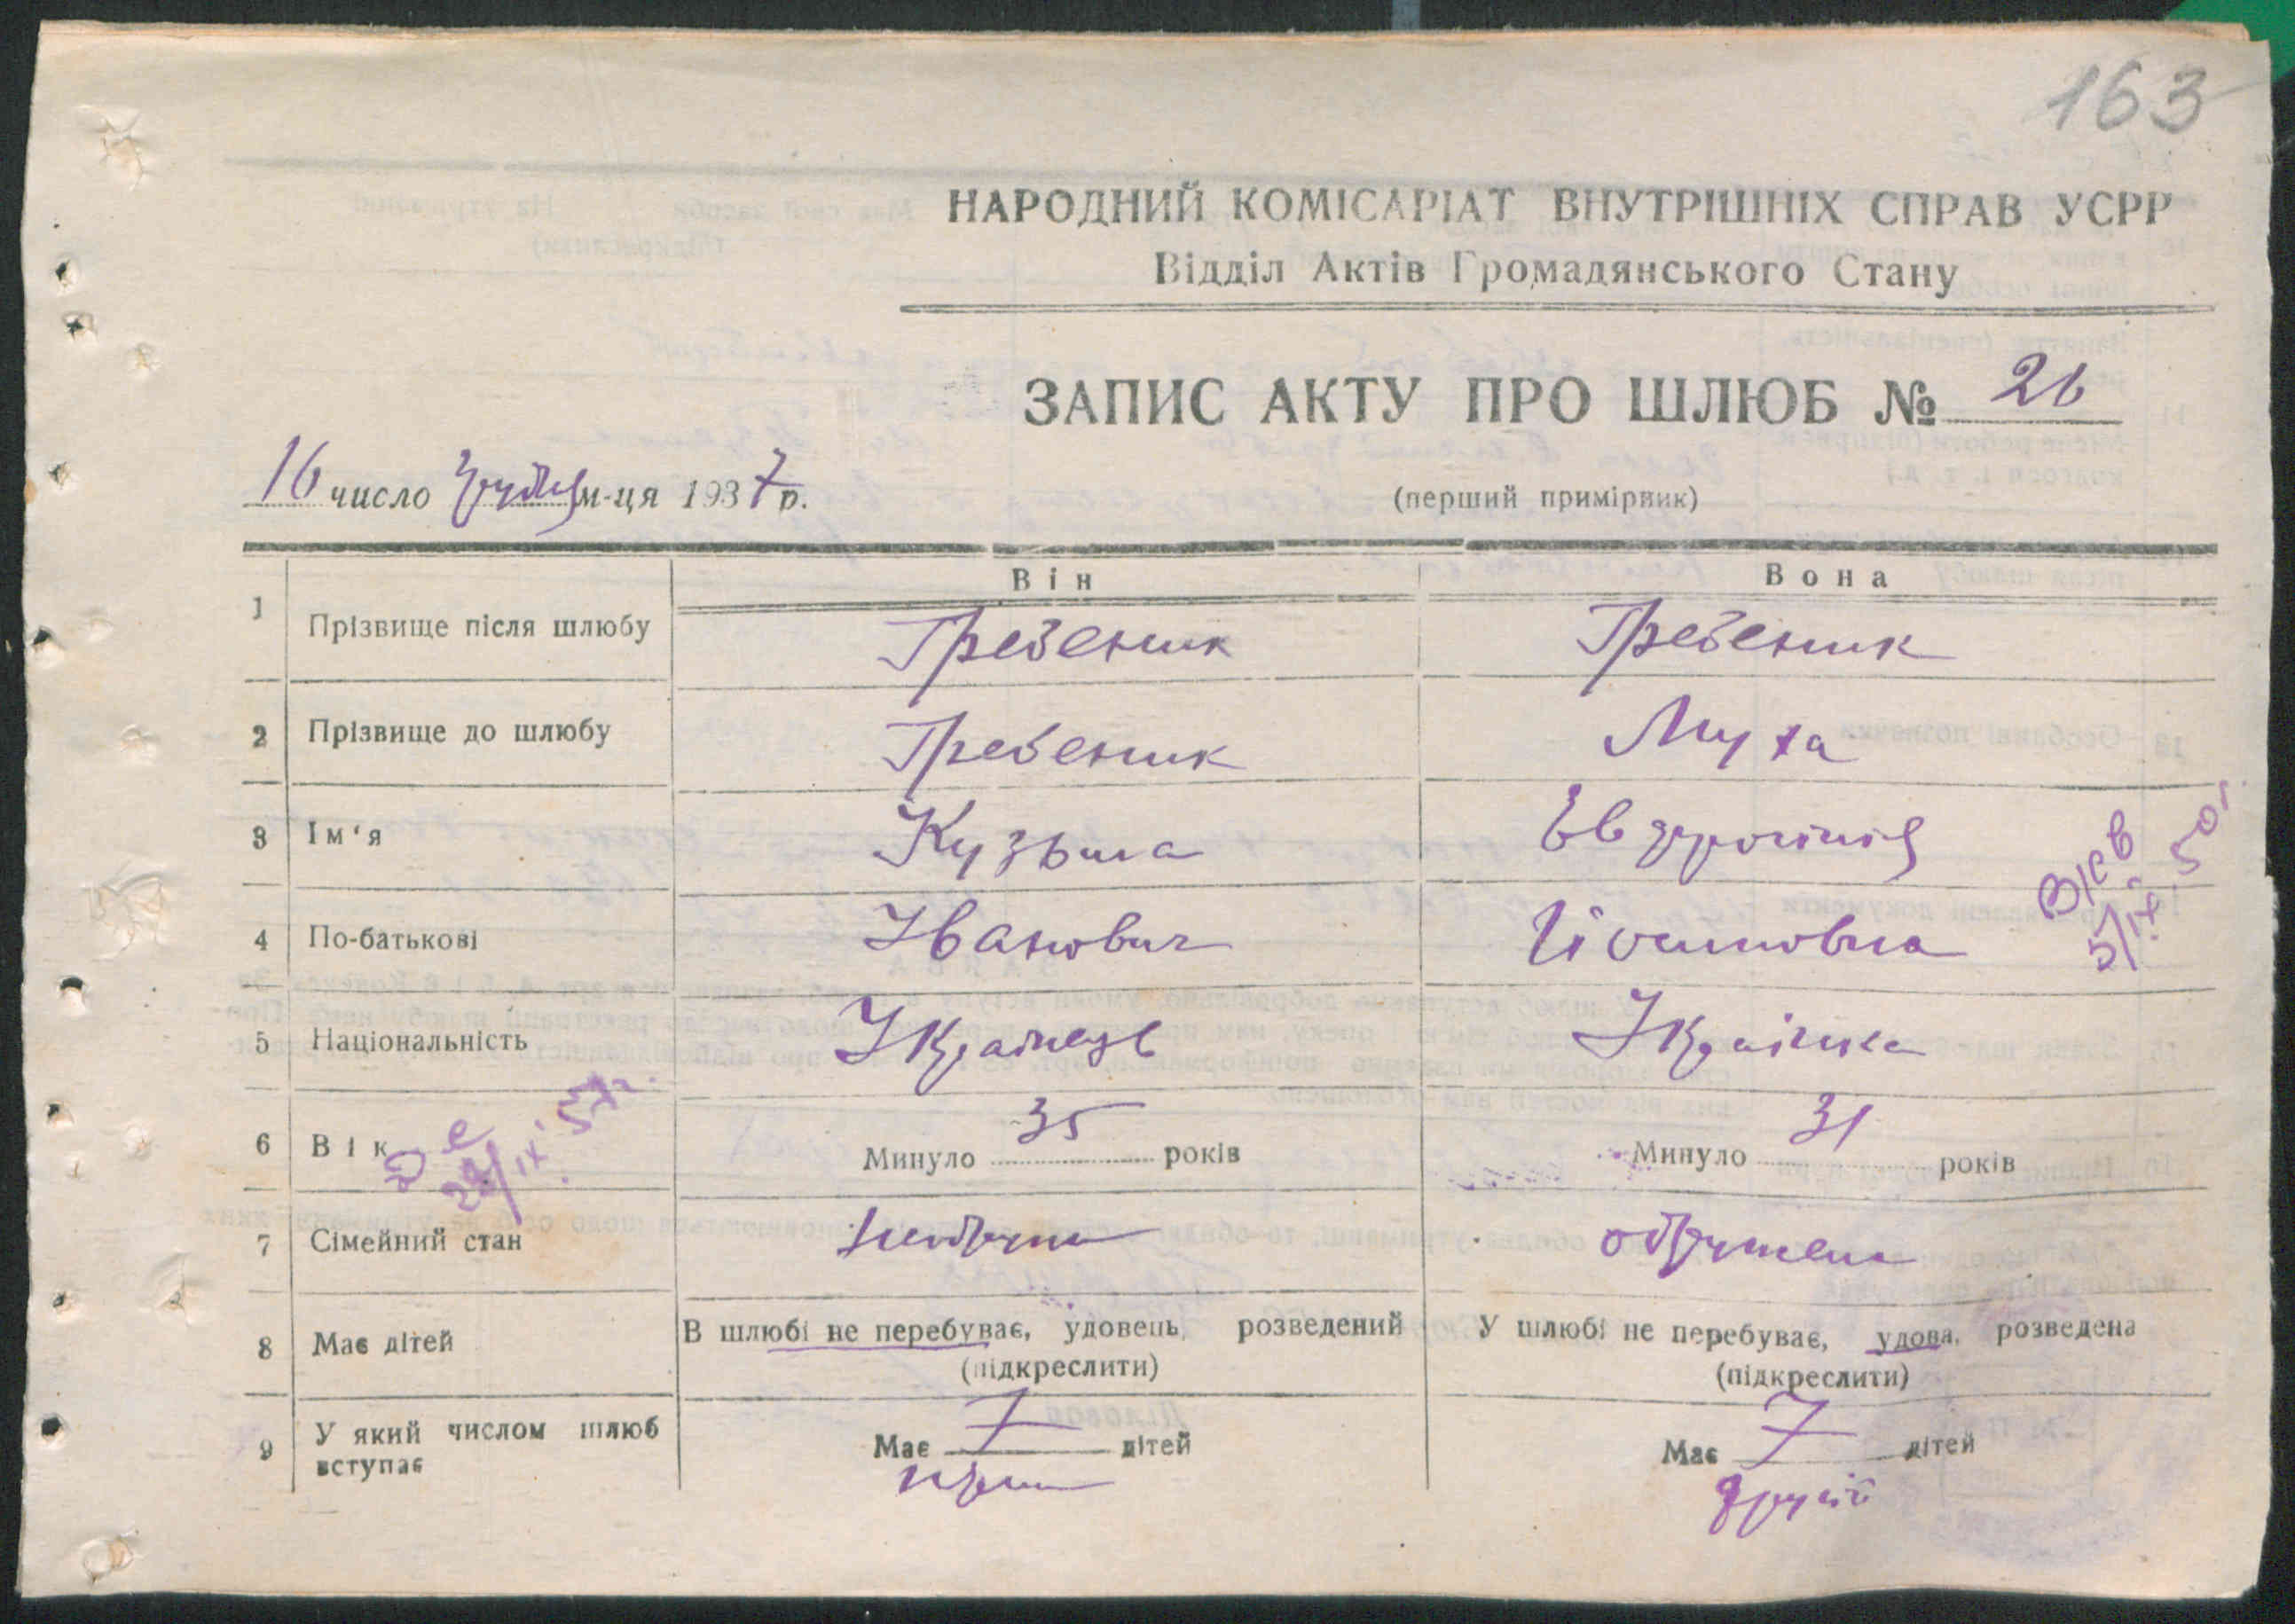 163
НАРОДНИЙ КОМІСАРІАТ ВНУТРІШНІХ СПРАВ УСРР
Відділ Актів Громадянського Стану
ЗАПИС АКТУ ПРО ШЛЮБ № 26
16 число грудня м-ця 1937 р.
(перший примірник)
Він Вона
1 Прізвище після шлюбу Гребеник Гребеник
2 Прізвище до шлюбу Гребеник Муха
3 Ім'я Кузьма Евдрочінія
4 По-батькові Іванович Йосиповна
5 Національність Українець Українка
6 Вік Минуло 35 років Минуло 31 років
7 Сімейний стан
8 Має дітей В шлюбі не перебуває, удовець, розведений У шлюбі не перебуває, удова, розведена
(підкреслити) (підкреслити)
9 У який числом шлюб Має дітей Має дітей
вступає другий
5/ІХ 50 г
29/ІХ 57 г.